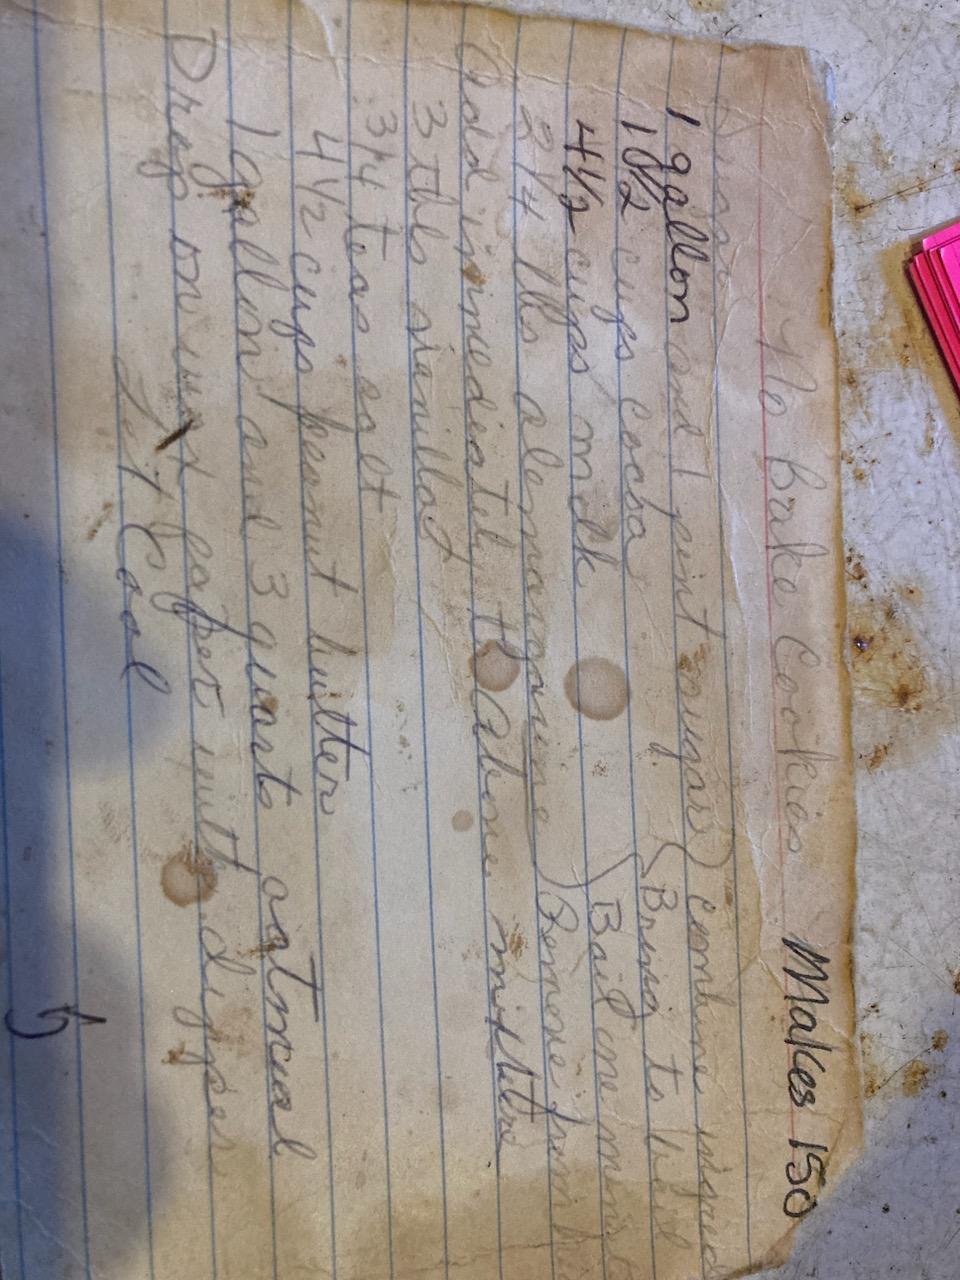 No Bake Cookies Makes 150
1 gallon and 1 pint sugar) combine
10 1/2 cups cocoa Bring to
4 1/2 cups milk Boil one
2 1/4 lbs Remove from
Add immediately to Above
3 tbls
3/4 teas salt
4 1/2 cups peanut butter
1 gallon and 3 quarts oatmeal
Drop on wax paper with dipper
Let Cool